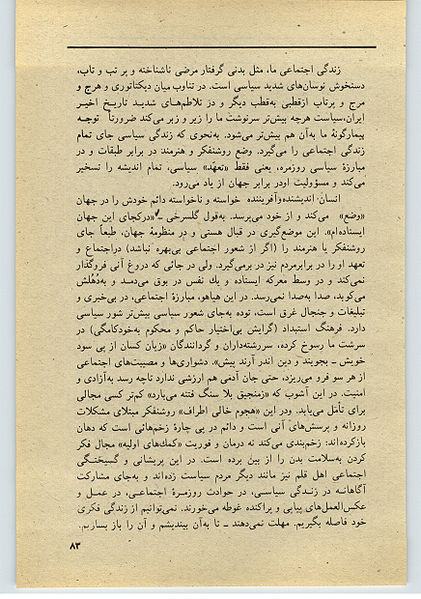 زندگی اجتماعی ما، مثل بدنی گرفتار مرضی ناشناخته و پر تب و تاب،
دستخوش نوسان‌های شدید سیاسی است. در تناوب میان دیکتاتوری و هرج و
مرج و پرتاب ازقطبی به‌قطب دیگر و در تلاطم‌های شدید تاریخ اخیر
ایران،سیاست هرچه بیش‌تر سرنوشت ما را زیر و زبر می‌کند ضرورتاً توجه
بیمارگونهٔ ما به‌آن هم بیش‌تر می‌شود. به‌نحوی که زندگی سیاسی جای تمام
زندگی اجتماعی را می‌گیرد. وضع روشنفکر و هنرمند در برابر طبقات و در
مبارزهٔ سیاسی روزمره، یعنی فقط «تعهّد» سیاسی، تمام اندیشه را تسخیر
می‌کند و مسؤولیت اودر برابر جهان از یاد می‌رود.
انسان اندیشنده‌وآفریننده خواسته و ناخواسته دائم خودش را در جهان
«وضع» می‌کند و از خود می‌پرسد. به‌قول گلسرخی ـ «درکجای این جهان
ایستاده‌ام». این موضع‌گیری در قبال هستی و در منظومهٔ جهان، طبعاً جای
روشنفکر یا هنرمند را (اگر از شعور اجتماعی بی‌بهره نباشد) دراجتماع و
تعهد او را در برابرمردم نیز در برمی‌گیرد. ولی در جائی که دروغ آنی فروگذار
نمی‌کند و در وسط معرکه ایستاده و یك نفس در بوق می‌دمد و به‌دُهُلش
می‌کوبد، صدا به‌صدا نمی‌رسد. در این هیاهو، مبارزهٔ اجتماعی، در بی‌خبری و
تبلیغات و جنجال غرق است، توده به‌جای شعور سیاسی بیش‌تر شور سیاسی
دارد. فرهنگ استبداد (گرایش بی‌اختیار حاکم و محکوم به‌خودکامگی) در
سرشت ما رسوخ کرده، سررشته‌داران و گردانندگان «زیان کسان از پی سود
خویش ـ بجویند و دین اندر آرند پیش». دشواری‌ها و مصیبت‌های اجتماعی
از هر سو فرو می‌ریزد، حتی جان آدمی هم ارزشی ندارد تاچه رسد به‌آزادی و
امنیت. در این آشوب که «زمنجیق بلا سنگ فتنه می‌بارد» کم‌تر کسی مجالی
برای تأمّل می‌یابد. ودر این «هجوم خالی اطراف» روشنفکر مبتلای مشکلات
روزانه و پرسش‌های آنی است و دائم در پی چارهٔ زخم‌هائی است که دهان
بازکرده‌اند: زخم‌بندی می‌کند نه درمان و فوریت «کمك‌های اولیه» مجال فکر
کردن به‌سلامت بدن را از بین برده است. در این پریشانی و گسیختگی
اجتماعی اهل قلم نیز مانند دیگر مردم سیاست زده‌اند و به‌جای مشارکت
آگاهانه در زندگی سیاسی، در حوادث روزمرهٔ اجتماعی، در عمل و
عکس‌العمل‌های پیاپی و پراکنده غوطه می‌خورند. نمی‌توانیم از زندگی فکری
خود فاصله بگیریم. مهلت نمی‌دهند ـ تا به‌آن بیندیشیم و آن را باز بسازیم.
۸۳